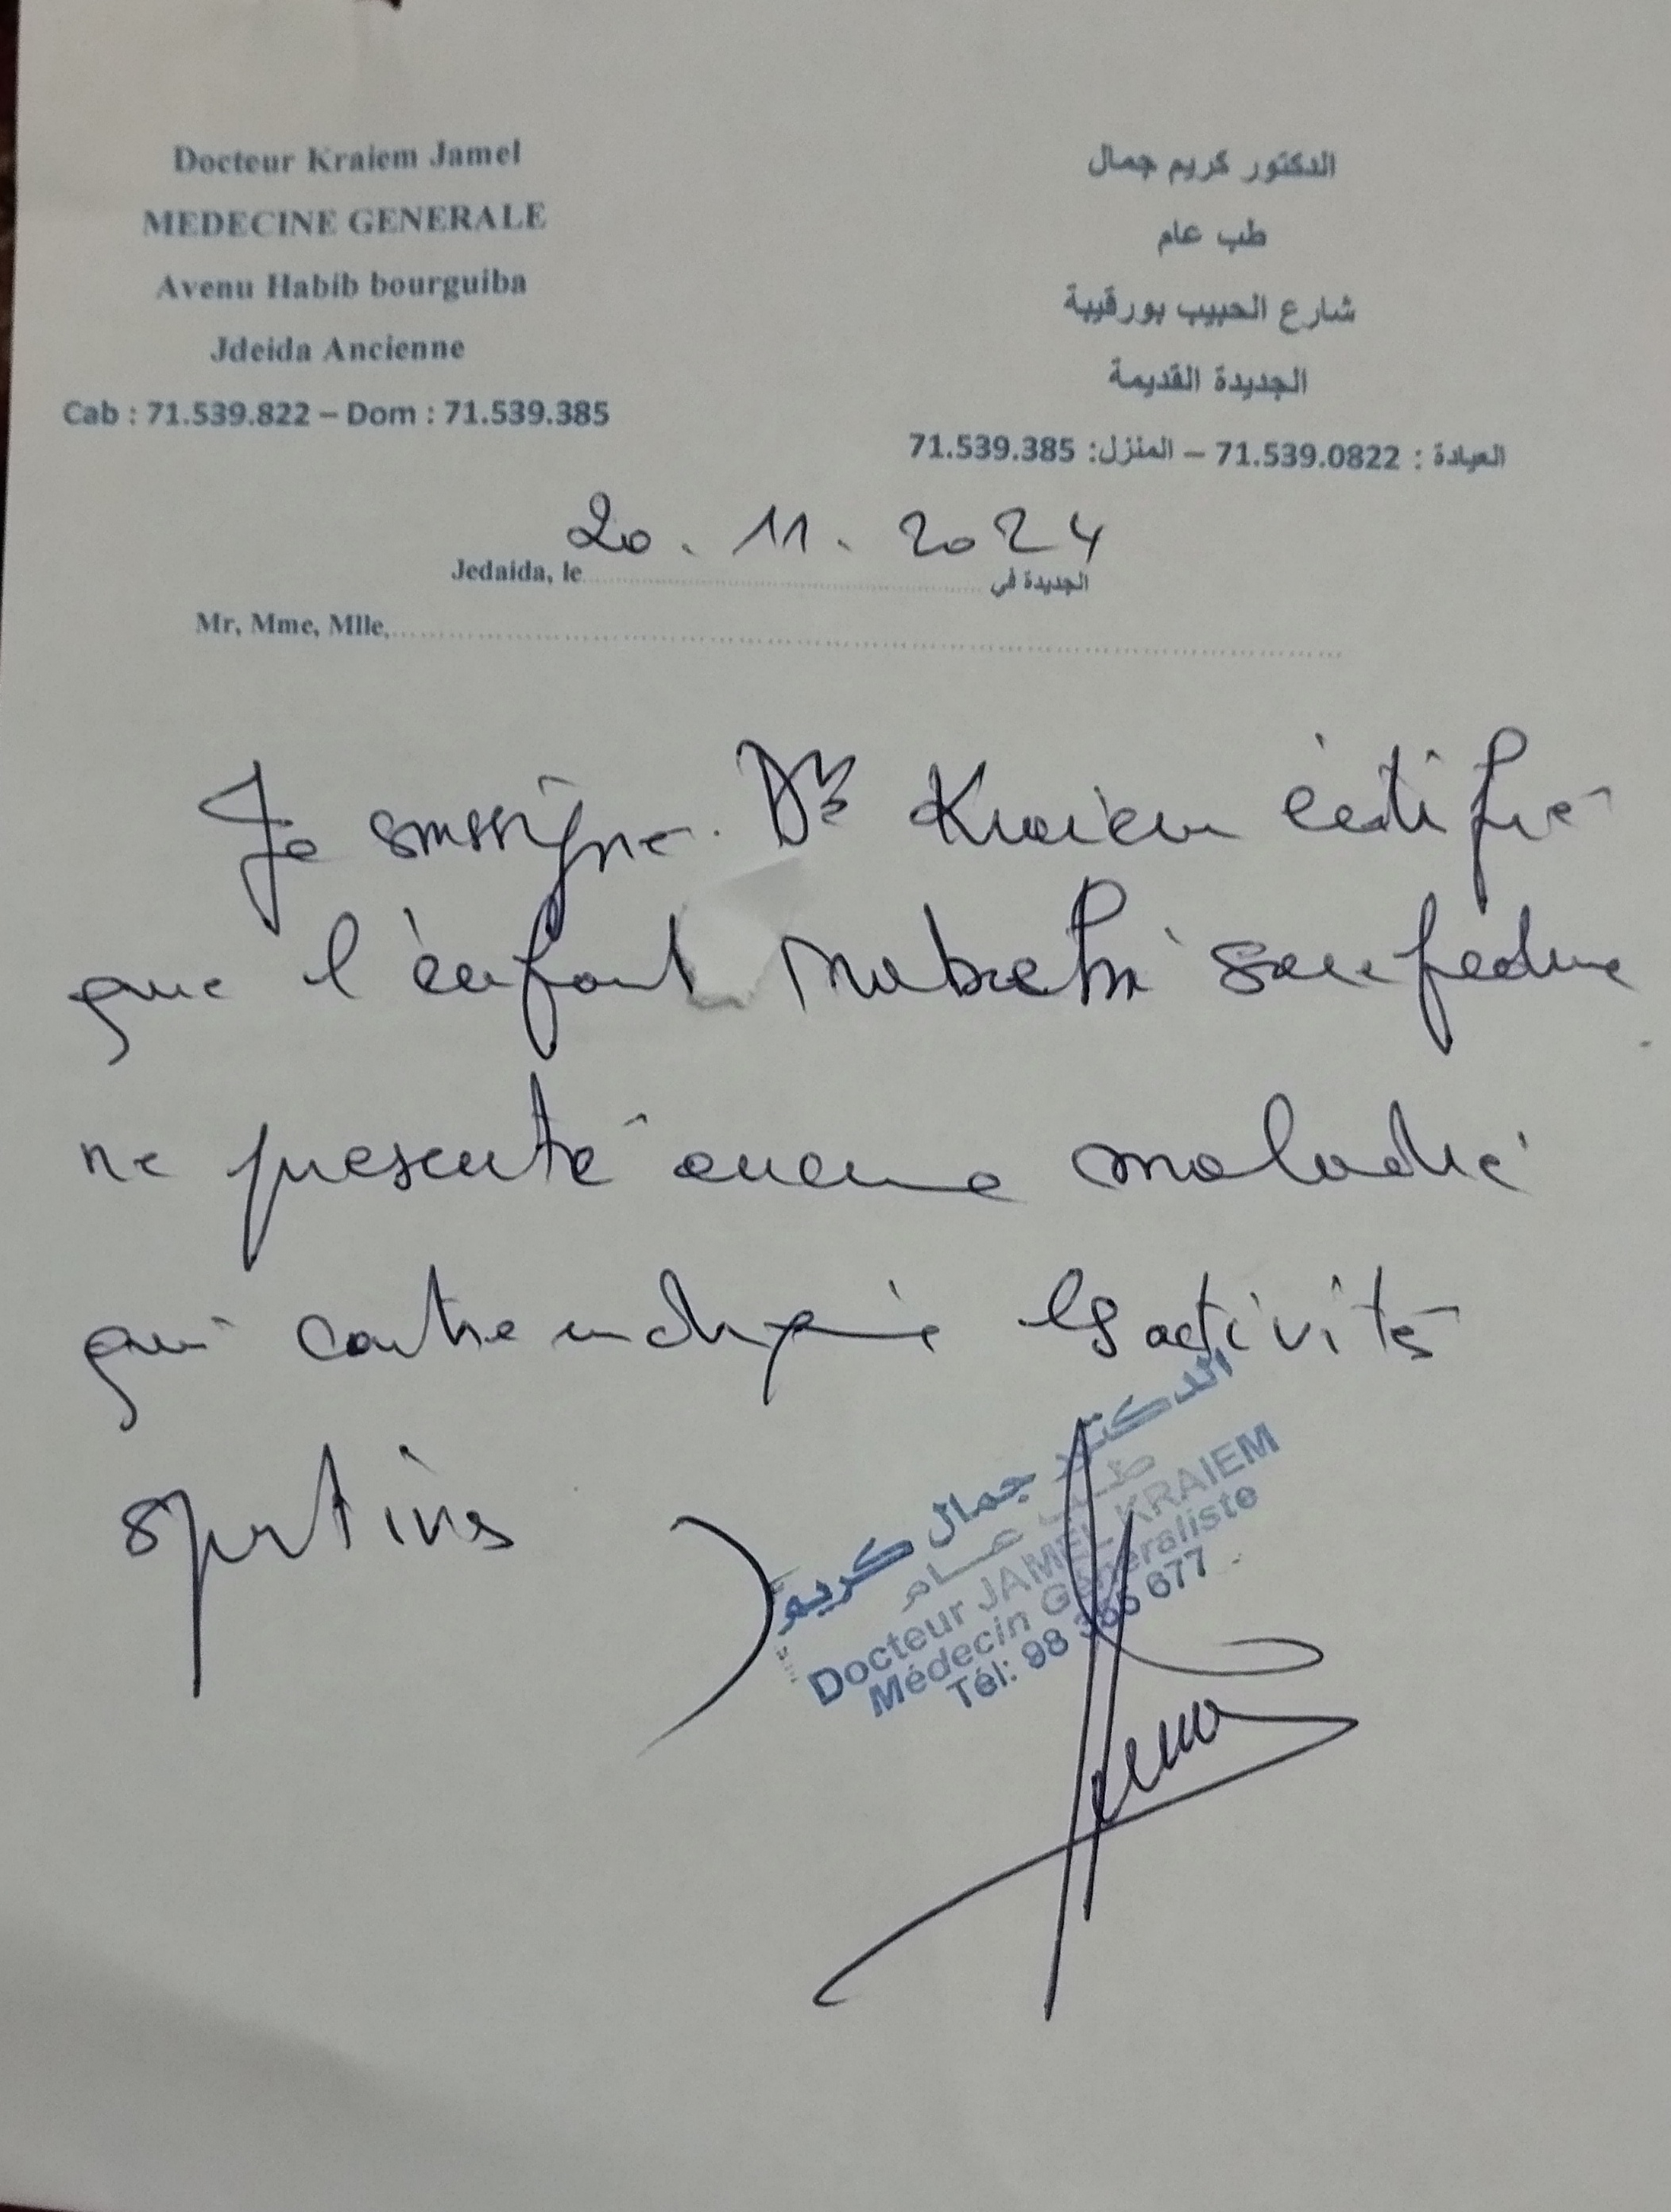 Docteur Kraiem Jamel
MEDECINE GENERALE
Avenu Habib bourguiba
Jdeida Ancienne
Cab : 71.539.822 – Dom : 71.539.385
الدكتور كريم جمال
طب عام
شارع الحبيب بورقيبة
الجديدة القديمة
العيادة : 71.539.0822 – المنزل: 71.539.385
Jedaida, le 20.11.2024 الجديدة في
Mr, Mme, Mlle,
Je soussigné Dr Kraiem certifie
que l'enfant
ne présente aucune maladie
qui contre indique les activités
sportives
الدكتور جمال كريم
طب عام
Docteur JAMEL KRAIEM
Médecin Généraliste
Tél: 98 365 677